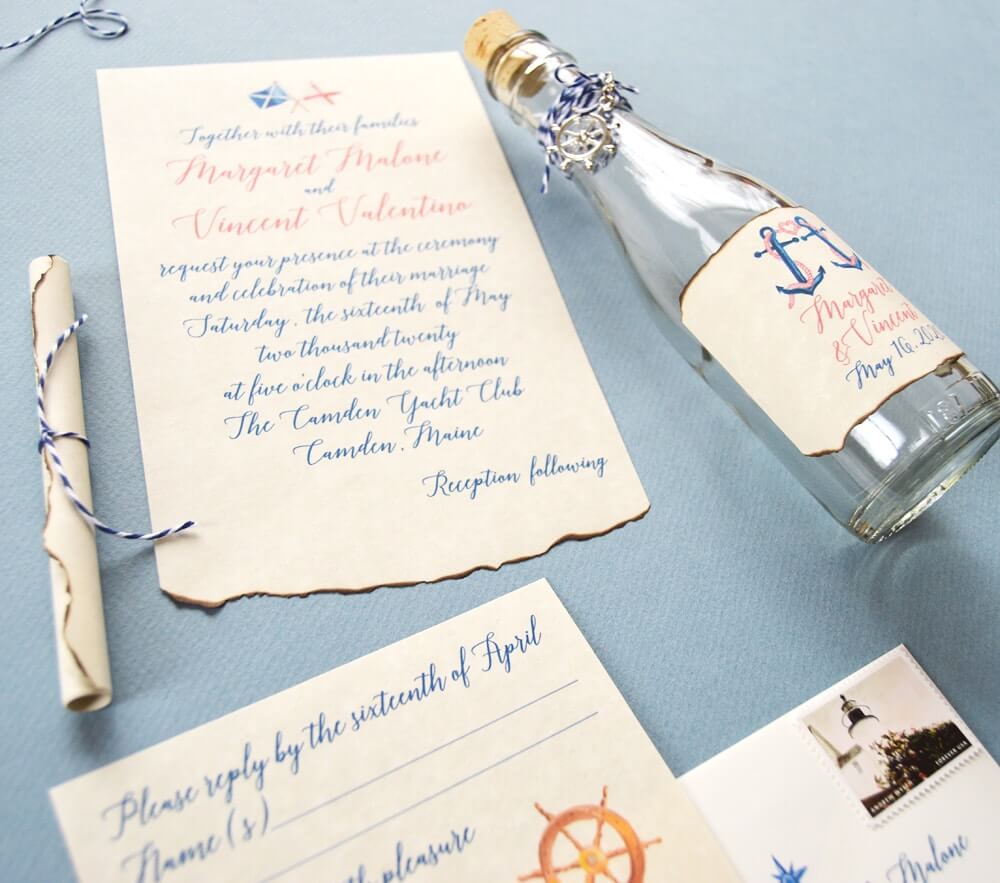 Together with their families
Margaret Malone
and
Vincent Valentino
request your presence at the ceremony
and celebration of their marriage
Saturday, the sixteenth of May
two thousand twenty
at five o'clock in the afternoon
The Camden Yacht Club
Camden, Maine
Reception following
Margaret
& Vincent
May 16, 2020
Please reply by the sixteenth of April
Name(s)
pleasure
ANDREW WYETH
FOREVER USA
Malone